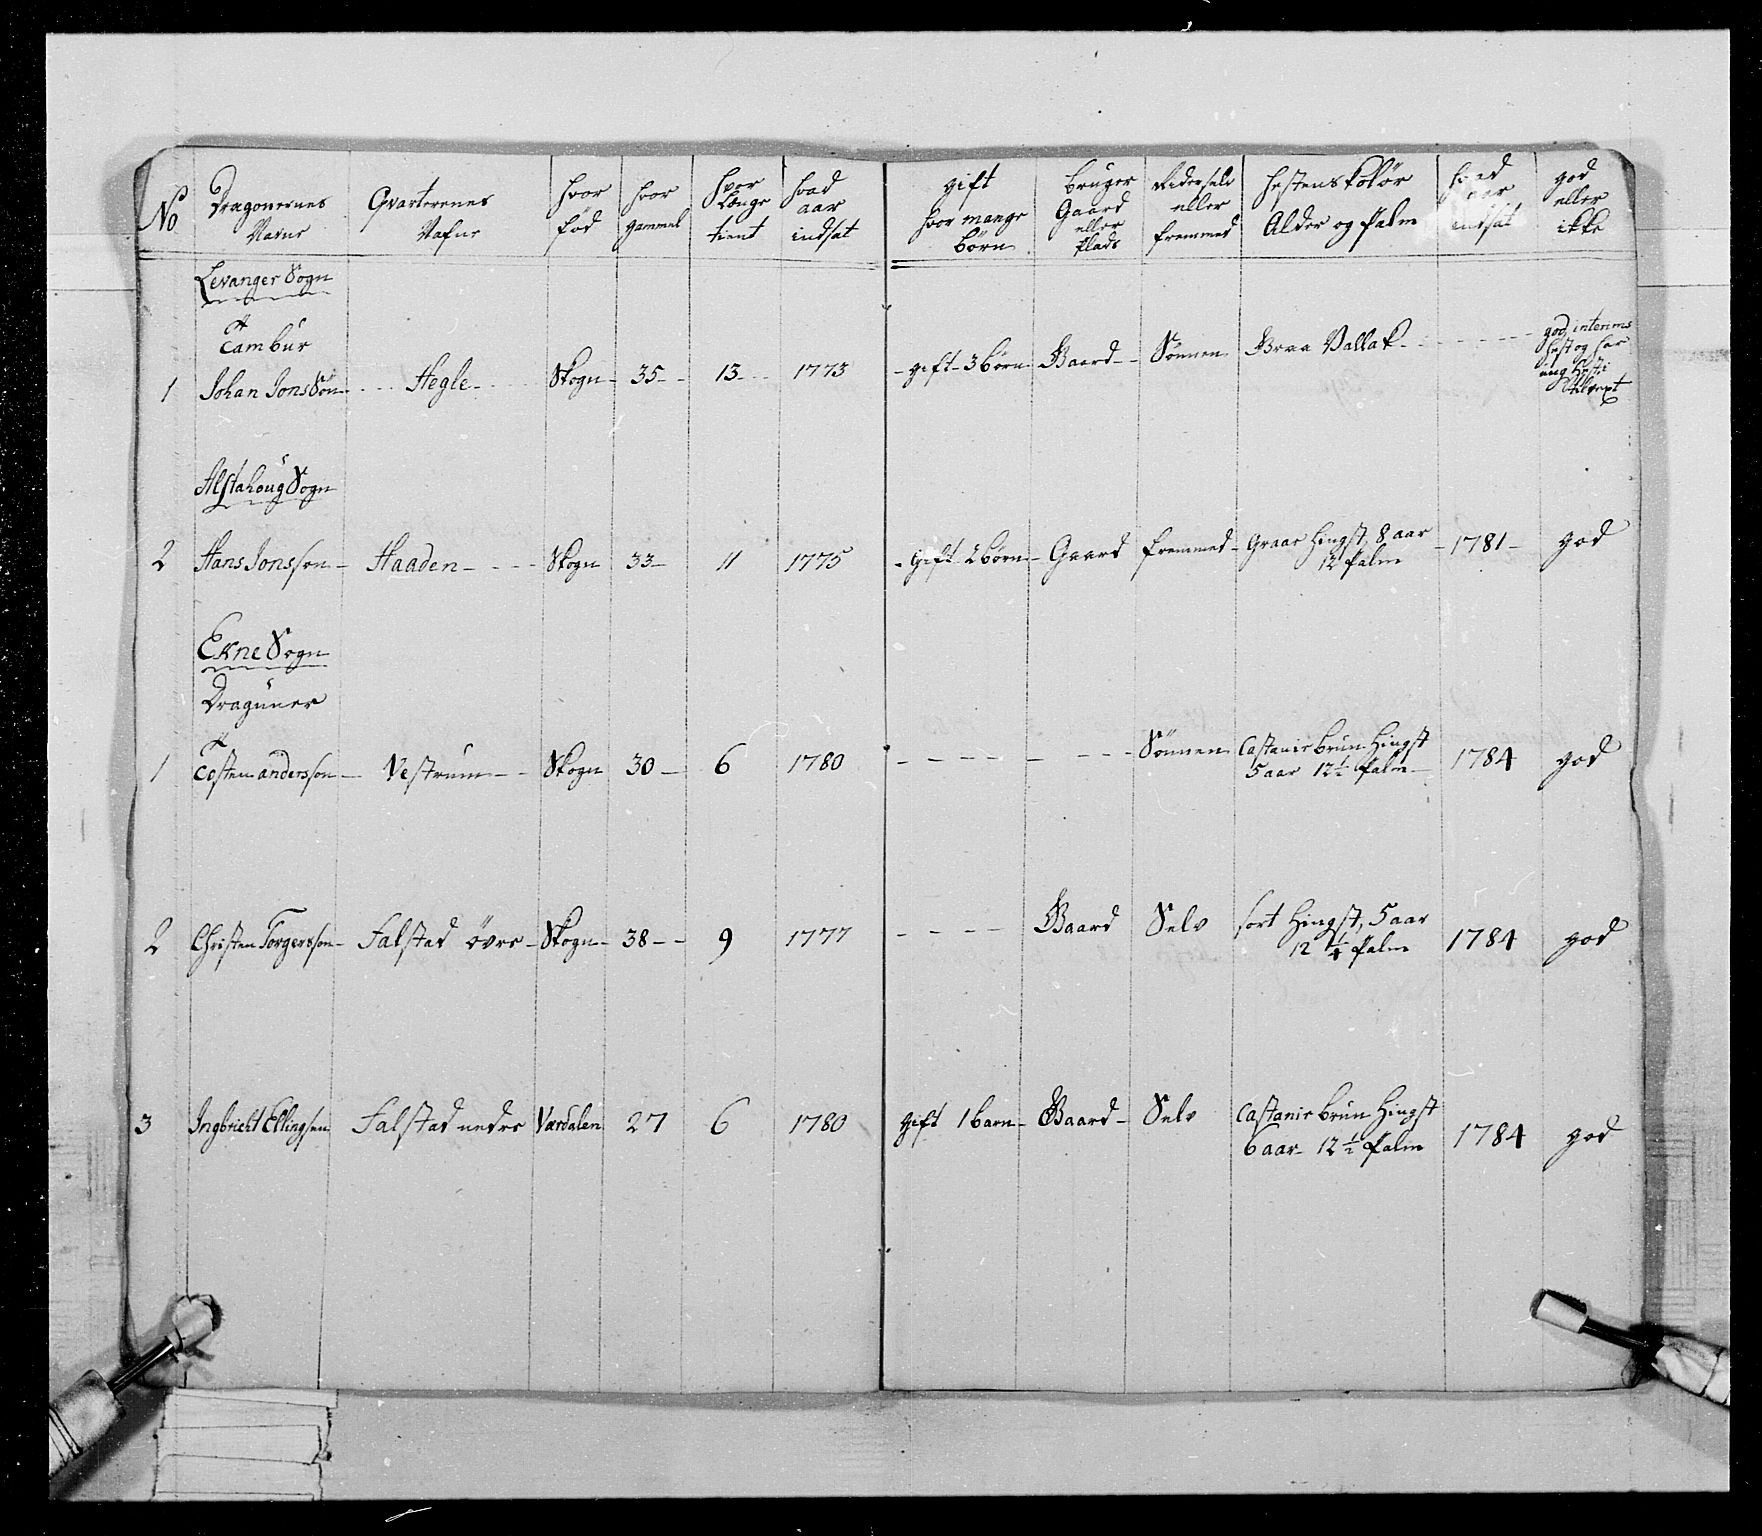 No Dragonernes Navne Qvarterenes Nafne hvor fød hvor gammel hvor Længe tient hvad aar indsat gift hvor mange børn bruger Gaard eller Plads Rider selv eller fremmed hestens kolør Alder og Palm hvad aar indsat god eller ikke
Levanger Sogn
Tambur
1 Johan Jonssøn Hegle Skogn 35 13 1773 gift 3 børn Gaard Sønnen Brun Vallak god interims hest og har ung hest
Alstahoug Sogn
2 Hans Jonsson Haaden Skogn 33 11 1775 gift 2 børn Gaard fremmed Graar Hingst, 8 aar 12 Palm 1781 god
Ekne Sogn
Draguner
1 Tosten anderssøn Vestrum Skogn 30 6 1780 Sønnen Castanie brun Hingst 5 aar 12½ Palm 1784 god
2 Christen Torgerssøn Falstad øvre Skogn 38 9 1777 Gaard Selv sort Hingst, 5 aar 12¼ Palm 1784 god
3 Ingbricht Ellingsen Falstad nedre Værdalen 27 6 1780 gift 1 barn Gaard Selv Castanie brun Hingst 6 aar 12½ Palm 1784 god